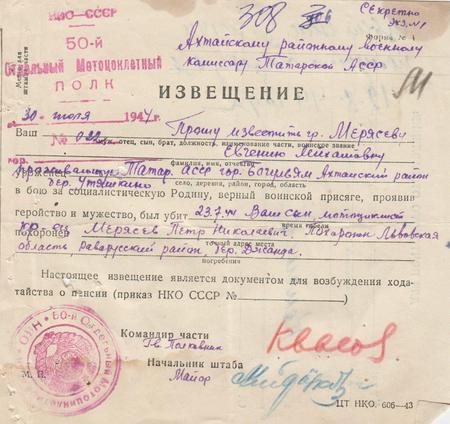 308
Секретно
Экз. №1
НКО—СССР
50-й
Отдельный Мотоциклетный
ПОЛК
Форма № 4
Место для штампа части
Ахтайскому районному Военному
комиссару Татарской АССР
ИЗВЕЩЕНИЕ
30 июля 1944 г.
№ 022
Прошу известить гр. Мерясеву
Ваш
муж, отец, сын, брат, должность, наименование части, воинское звание
Евгению Михайловну
фамилия, имя, отчество
проживающую Татар. АССР
Ахтайский район
село, деревня, район, город, область
дер. Утяшкино
в бою за социалистическую Родину, верный воинской присяге, проявив
геройство и мужество, был убит 23.7.44 Ваш сын, мотоциклист
время гибели
похоронен
кр-ец Мерясев Петр Николаевич Похоронен Львовская
область, Раварусский район, дер.
точный адрес места
погребения
Настоящее извещение является документом для возбуждения хода-
тайства о пенсии (приказ НКО СССР №
)
Командир части
Гв. Полковник
Квасов
Начальник штаба
Майор
М. П.
НКО 50-й Отдельный Мотоциклетный
ЦТ НКО. 606—43